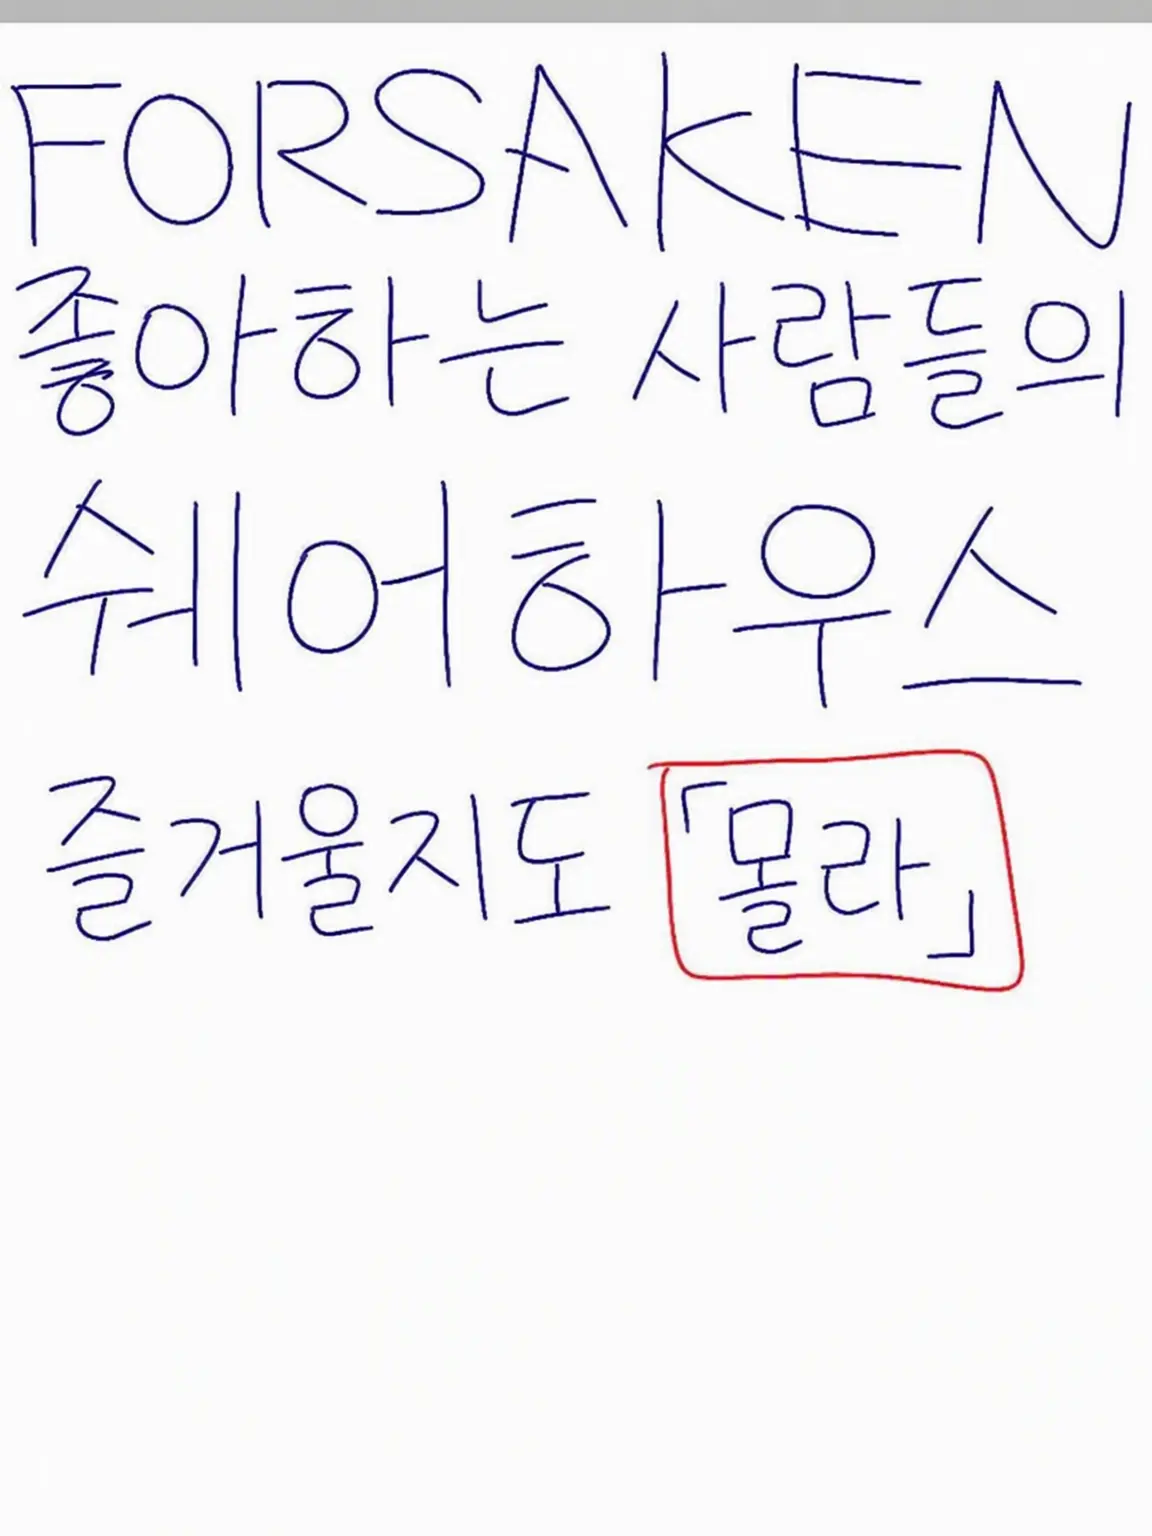 FORSAKEN
좋아하는 사람들의
쉐어하우스
즐거울지도 「몰라」